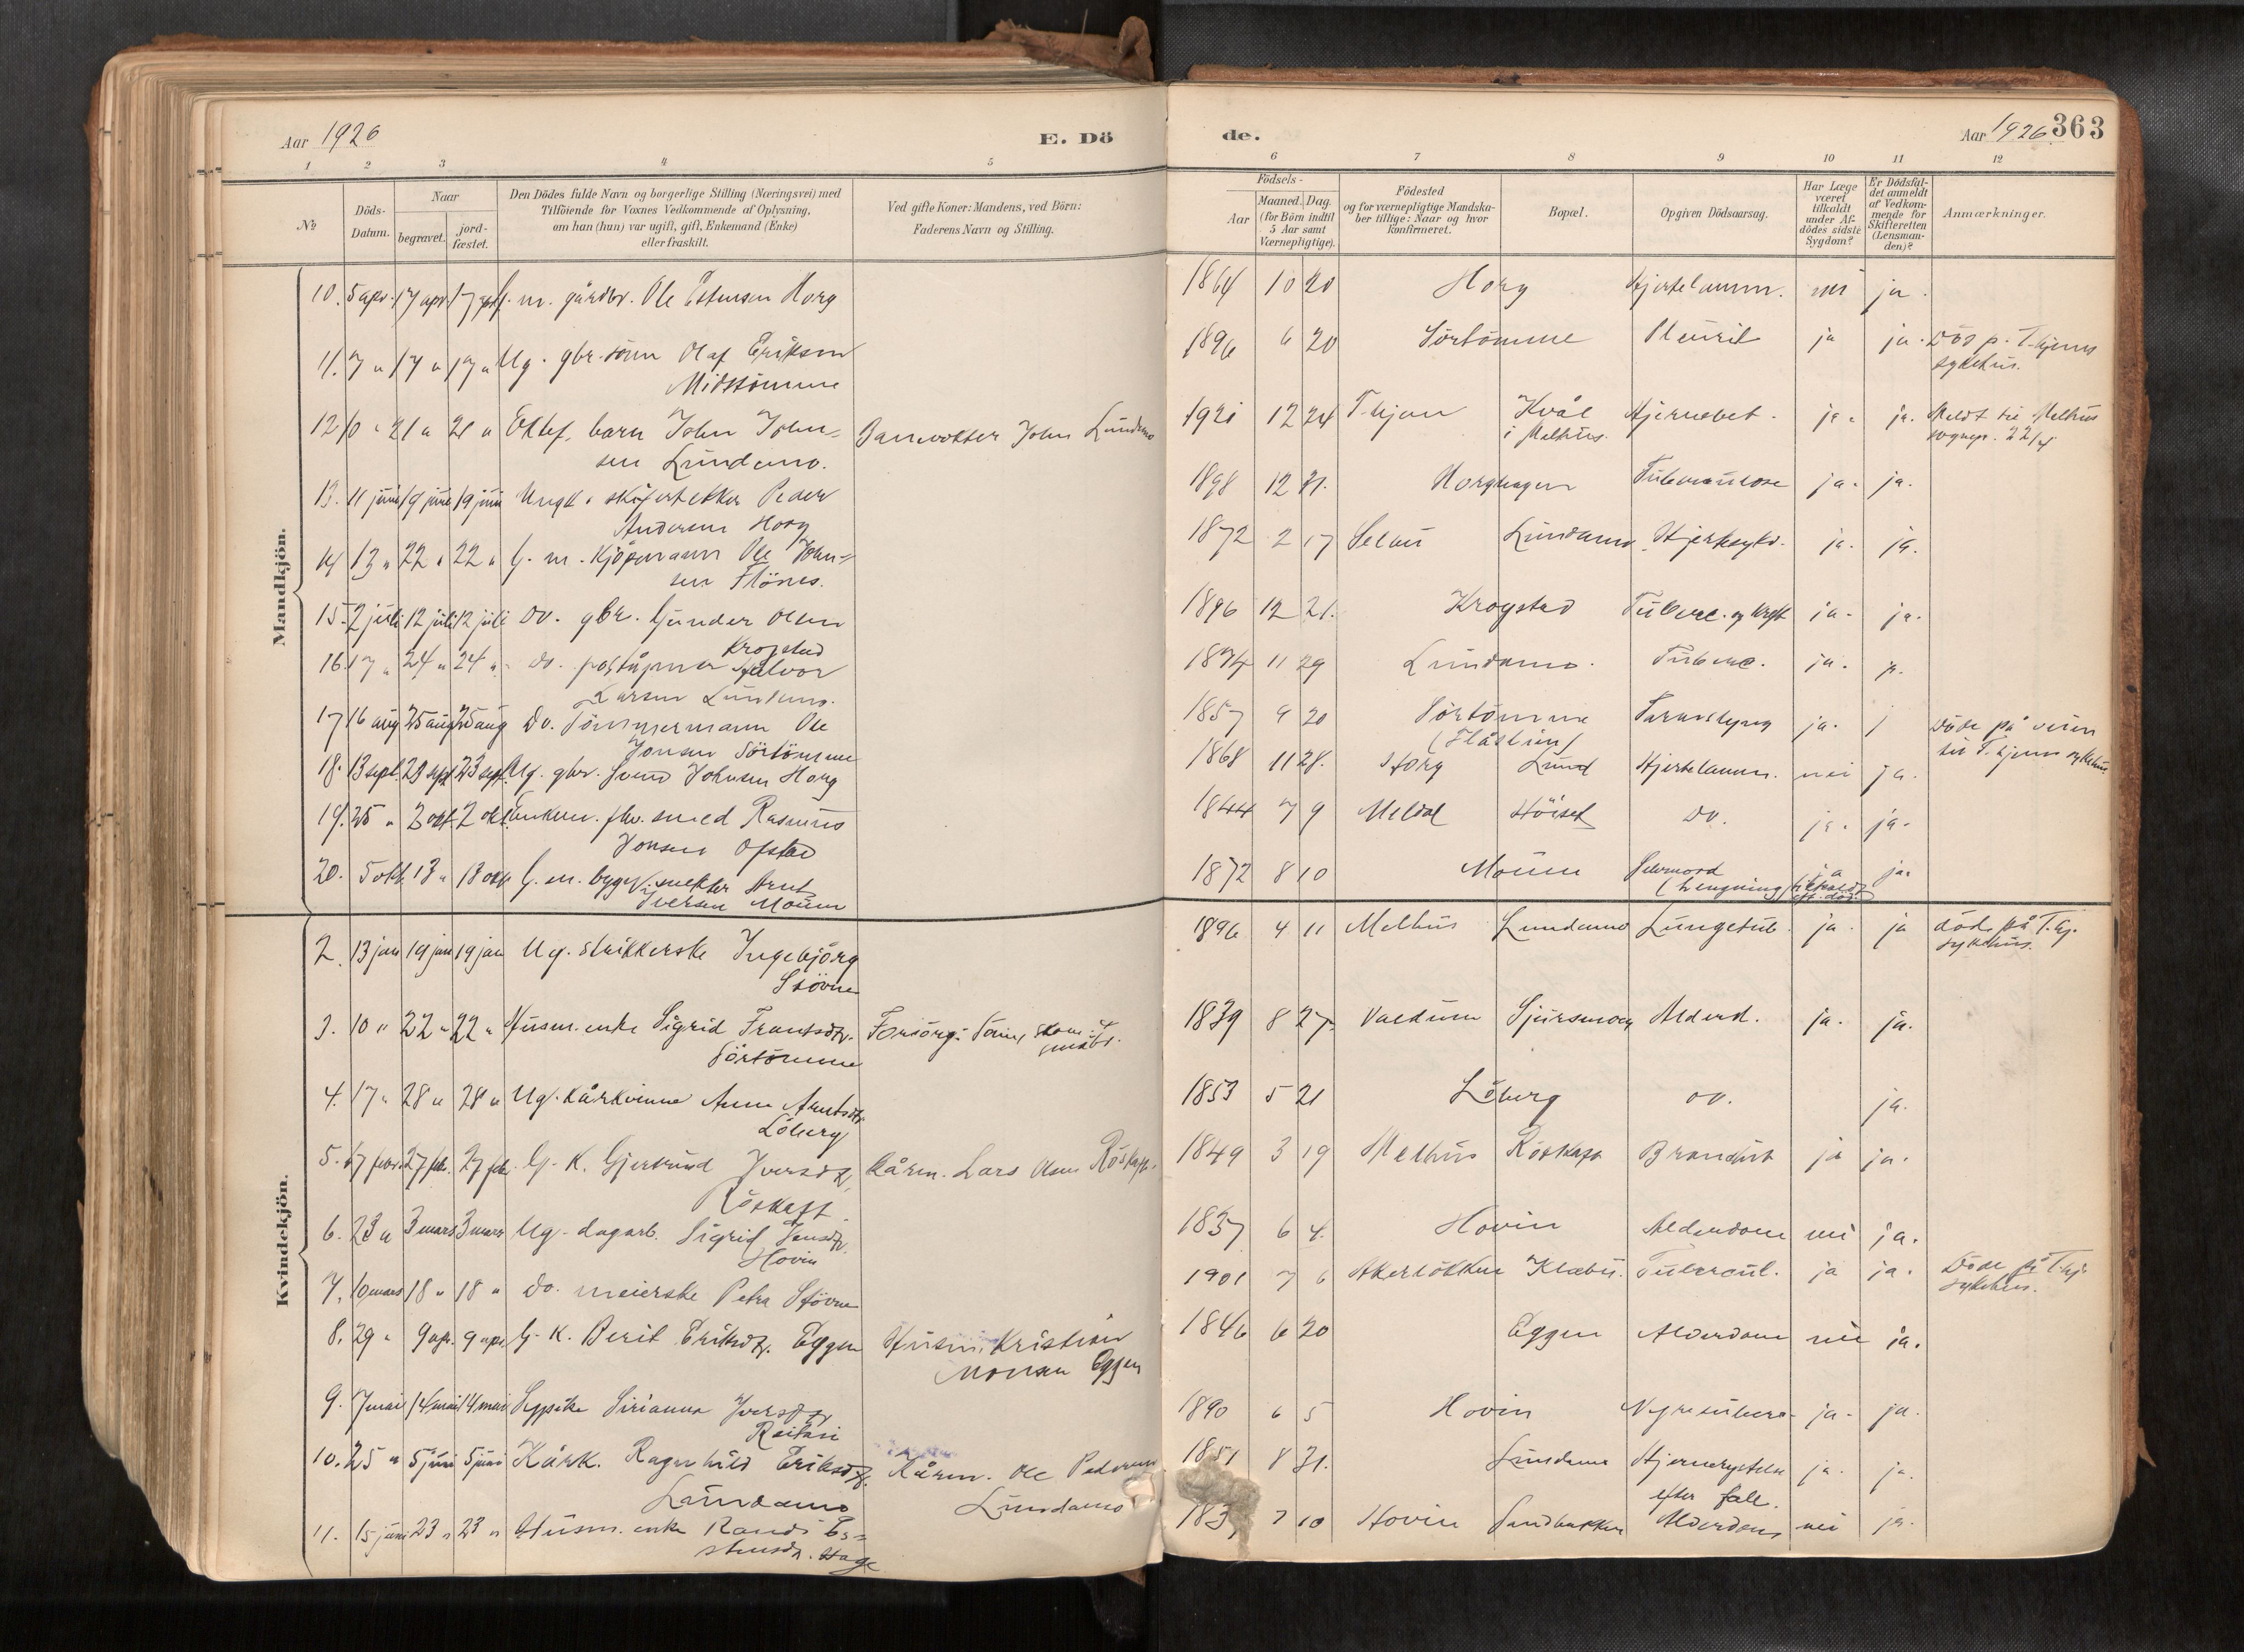 Aar 1926
E. Dö
de.
Aar 1926. 363
1 2 3 4 5 6 7 8 9 10 11 12
№
Döds-Datum.
Naar
begravet.
jord-fæstet.
Den Dödes fulde Navn og borgerlige Stilling (Næringsvei) med
Tilföiende for Voxnes Vedkommende af Oplysning,
om han (hun) var ugift, gift, Enkemand (Enke)
eller fraskilt.
Ved gifte Koner: Mandens, ved Börn:
Faderens Navn og Stilling.
Födsels-
Aar
Maaned. Dag.
(for Börn indtil
5 Aar samt
Værnepligtige).
Födested
og for værnepligtige Mandska-
ber tillige: Naar og hvor
konfirmeret.
Bopæl.
Opgiven Dödsaarsag.
Har Læge
været
tilkaldt
under Af-
dödes sidste
Sygdom?
Er Dödsfal-
det anmeldt
af Vedkom-
mende for
Skifteretten
(Lensman-
den)?
Anmærkninger.
Mandkjön.
10. 5 apr. 17 apr. 17 apr. G. m. gårdbr. Ole Estensen Horg 1864 10 20 Horg Hjertelamm. nei ja.
11. 7 " 17 " 17 " Ug. gbr. sönn Olaf Eriksen
Midttömme 1896 6 20 Sörtömme Pleurit ja ja. Död p. T-hjems
sykehus.
12 10 " 21 " 21 " Ektef. barn John John-
sen Lundamo. Banevokter John Lundamo 1921 12 24 T-hjem Kvål
i Melhus. Hjernebet. ja. ja. Meldt til Melhus
sognepr. 22/4
13. 11 juni 19 juni 19 juni Ungk. skiferhekker Peder
Andersen Horg 1898 12 31. Horghagen Tuberculose ja. ja.
14 13 " 22 " 22 " G. m. kjöpmann Ole John-
sen Flönes. 1872 2 17 Selbu Lundamo Hjertesykd. ja. ja.
15. 2 juli 12 juli 12 juli Do. gbr. Gunder Olsen
Krogstad 1896 12 21. Krogstad Tuberc. og kreft ja. ja.
16. 17 " 24 " 24 " do. poståpner Halvor
Larsen Lundamo. 1874 11 29 Lundamo. Tuberc. ja. ja.
17 16 aug 25 aug 25 aug Do. Tömmermann Ole
Jonsen Sörtömme 1857 9 20 Sörtömme
(Flåslien) Tarmslyng ja. j Döde på veien
til T.hjems sykehus.
18. 13 sept. 23 sept 23 sept. Ug. gbr. Svend Johnsen Horg 1868 11 28. Horg Lund Hjertelamm. nei ja.
19. 25 " 2 okt. 2 okt. Enkem. fhv. smed Rasmus
Jonsen Ofstad 1844 7 9 Meldal Höiset do. ja. ja.
20. 5 okt. 13 " 13 okt. G. m. byggv. Arnt
Iversen Mouen 1872 8 10 Mouen Selvmord
(hengning) ja ja.
Kvindekjön.
2. 13 jan 19 jan 19 jan Ug. strikkerske Ingebjörg
Stövne 1896 4 11 Melhus Lundamo Lungetub. ja. ja död på T.hj.
sykehus.
3. 10 " 22 " 22 " Husm. enke Sigrid Frantsdtr.
Sörtömme 1839 8 27. Valdum Sjursmoen Alderd. ja. ja.
4. 17 " 28 " 28 " Ug. kårkvinne Anne Arntsdtr
Löberg 1853 5 21 Löberg do. ja.
5. 17 febr. 27 febr. 27 febr. G. K. Gjertrud Iversdtr.
Röskaft Kårm. Lars Olsen Röskaft. 1849 3 19 Melhus Röskaft ja ja.
6. 23 " 3 mars 3 mars Ug. dagarb. Sigrid Jensdtr.
Hovin 1837 6 4. Hovin Alderdom nei ja.
7. 10 mars 18 " 18 " Do. meierske Petra Stövne 1901 7 6 Klæbu. Tubercul. ja ja. Döde på T.hj.
sykehus.
8. 29 " 9 apr. 9 apr. G. K. Berit Eriksdtr. Eggen Husm. Kristian
Monsen Eggen 1846 6 20 Eggen Alderdom nei ja.
9. 7 mai 14 mai 14 mai Sypike Sirianna Iversdtr 1890 6 5 Hovin ja. ja.
10. 25 " 5 juni 5 juni Kårk. Ragnhild Eriksdtr.
Lundamo Kårm. Ole Pedersen
Lundamo 1851 8 31. Lundamo Hjernerystelse
efter fall. ja. ja.
11. 15 juni 23 " 23 " Husm. enke Randi Es-
stensdtr. Hage 7 10 Hovin Sandbakken Alderdom nei ja.